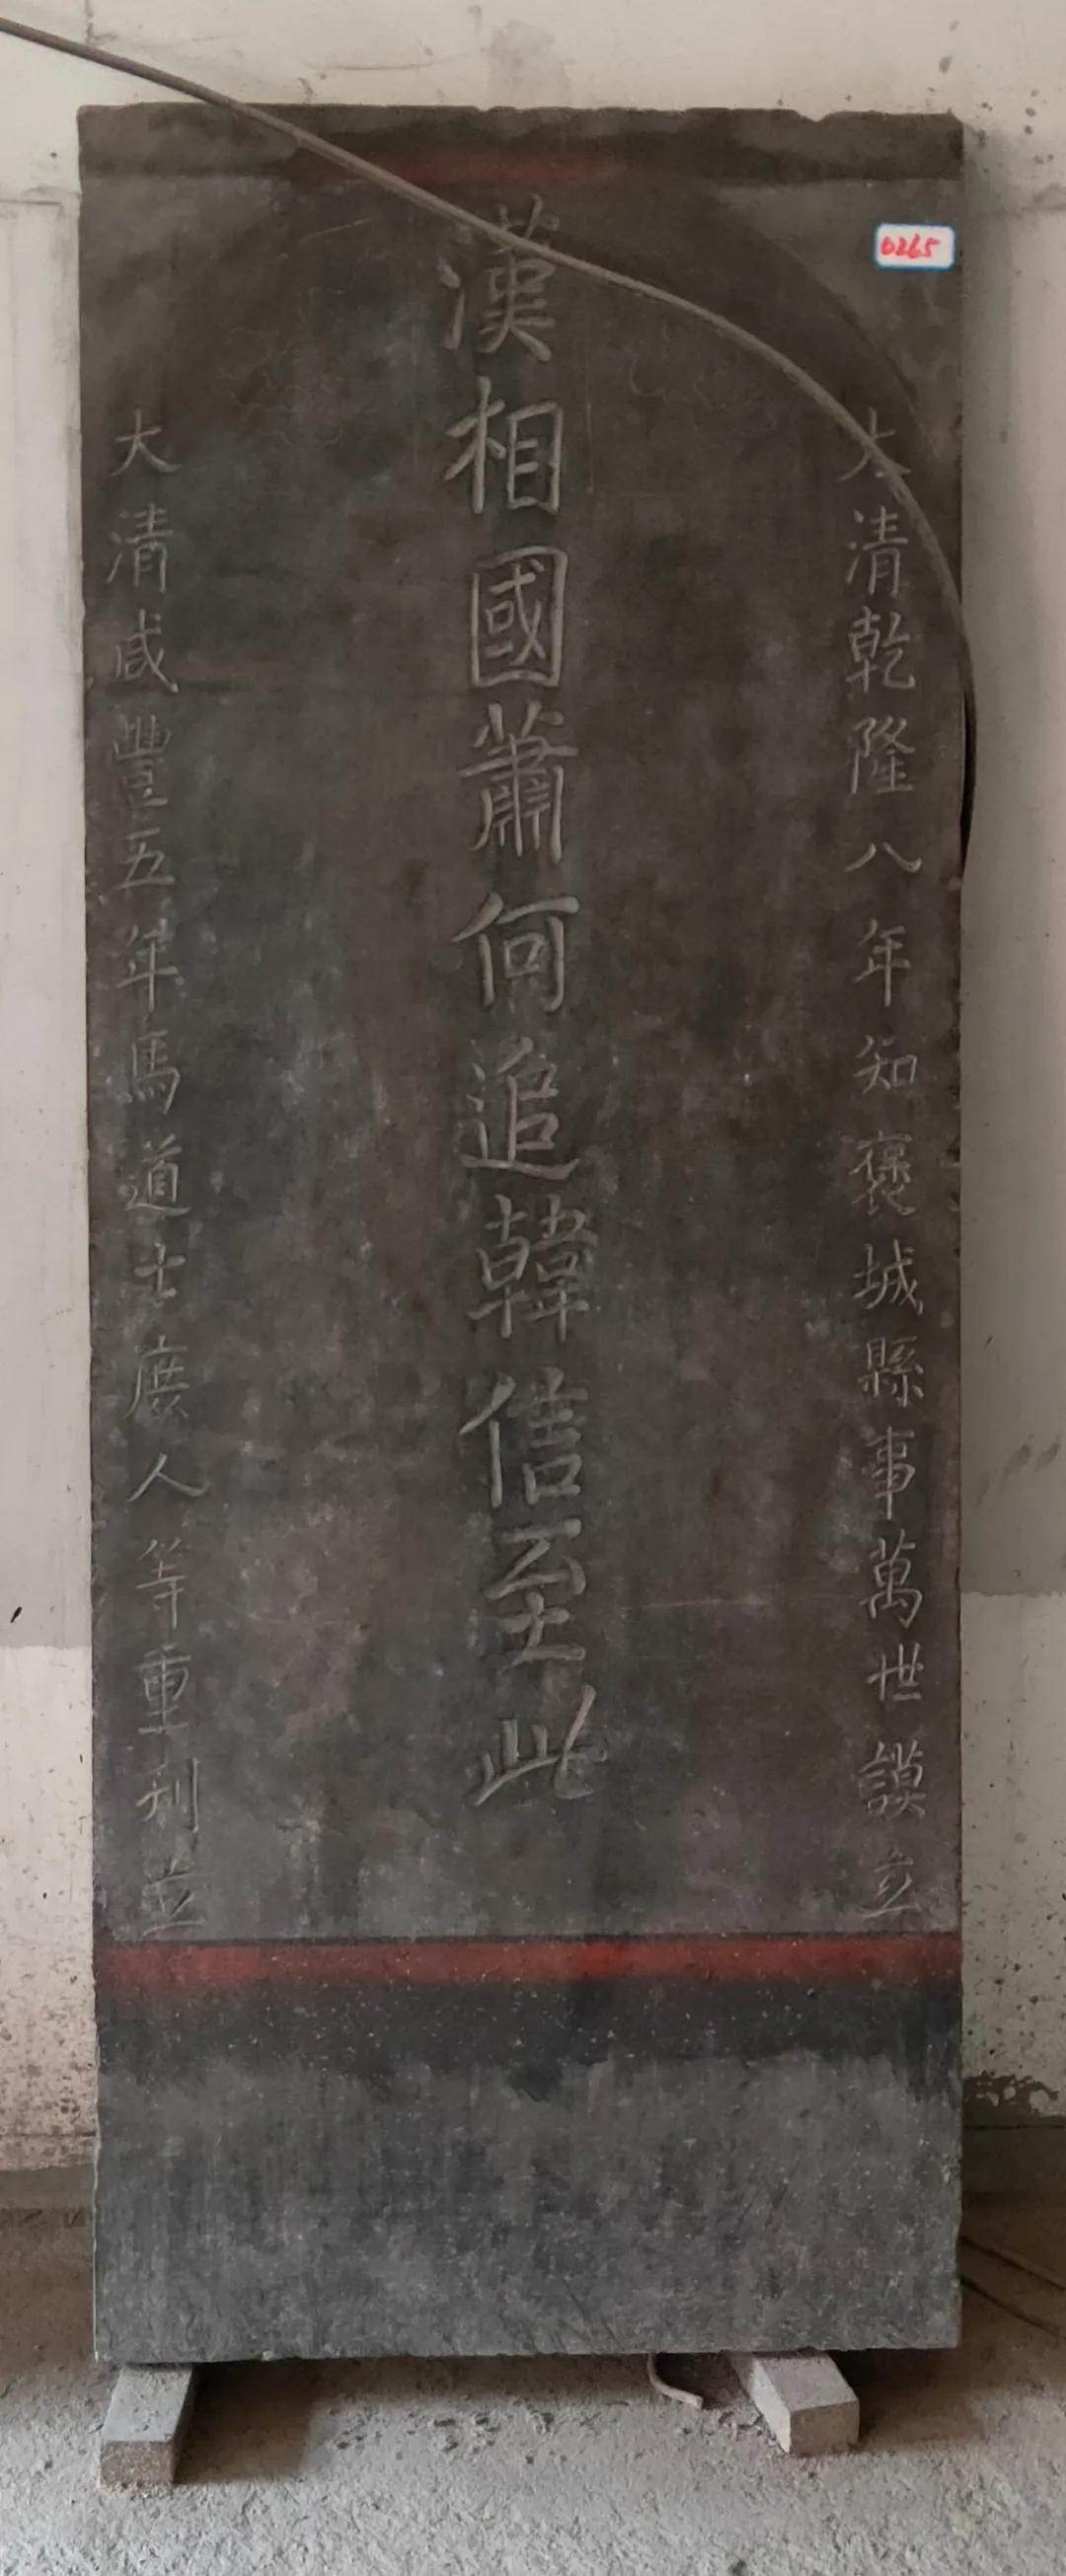 大清乾隆八年知褒城縣事萬世謨立
漢相國蕭何追韓信至此
大清咸豐五年馬道士庶人等重刊立
0265